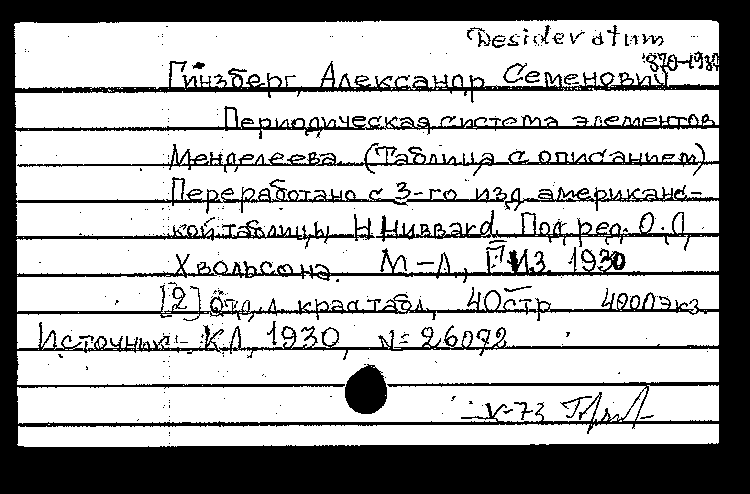 Desideratum
Гинзберг, Александр Семенович
Периодическая система элементов
Менделеева. (Таблица с описанием)
Переработано с 3-го изд. американс-
кой таблицы Н. Hubbard. Под ред. О.Д.
Хвольсона. М.-Л., ГИЗ. 1930
[2] отд. л. крас. табл., 40 стр. 4000 экз.
Источник: КЛ, 1930, N=26092
V-73